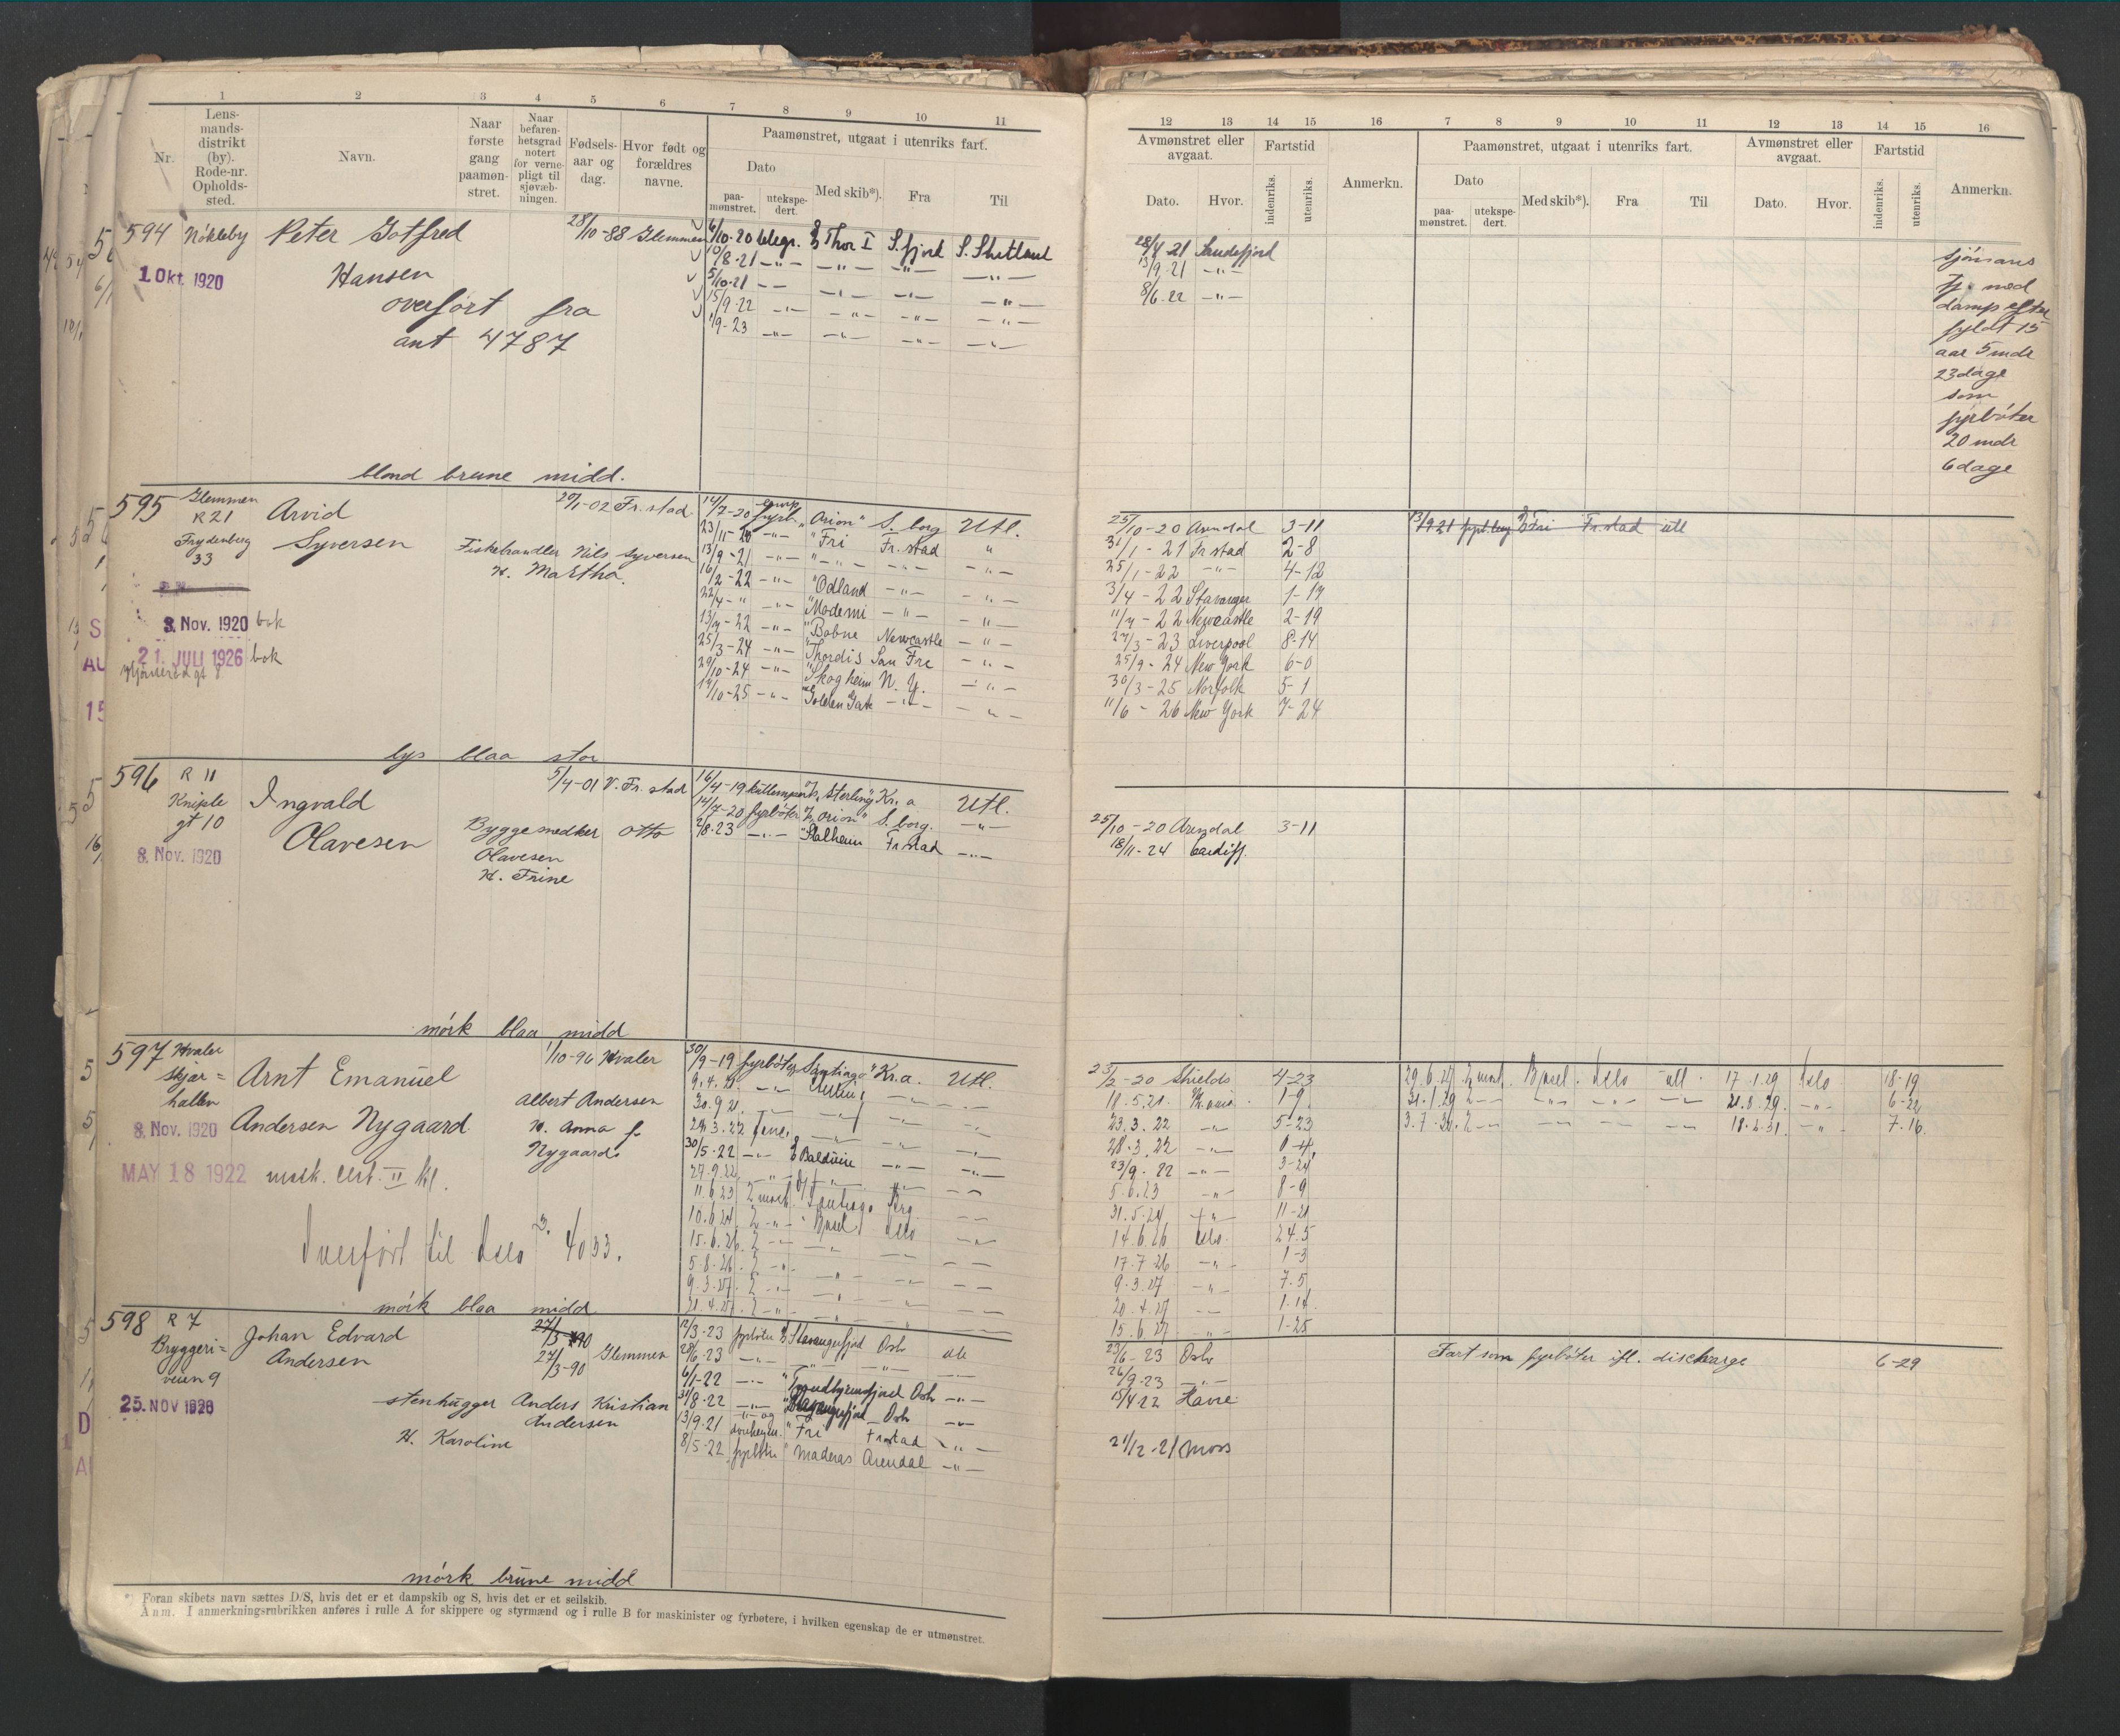 1 2 3 4 5 6 7 8 9 10 11
Nr.
Lens-
mands-
distrikt
(by).
Rode-nr.
Opholds-
sted.
Navn.
Naar
første
gang
paamøn-
stret.
Naar
befaren-
hetsgrad
notert
for verne-
pligt til
sjøvæb-
ningen.
Fødsels-
aar og
dag.
Hvor født og
forældres
navne.
Paamønstret, utgaat i utenriks fart.
Dato
paa-
mønstret.
utekspe-
dert.
Med skib*).
Fra
Til
12 13 14 15 16 7 8 9 10 11 12 13 14 15 16
Avmønstret eller
avgaat.
Dato.
Hvor.
Fartstid
indenriks.
utenriks.
Anmerkn.
Paamønstret, utgaat i utenriks fart.
Dato
paa-
mønstret.
utekspe-
dert.
Med skib*).
Fra
Til
Avmønstret eller
avgaat.
Dato.
Hvor.
Fartstid
indenriks.
utenriks.
Anmerkn.
594 Nókleby Peter Gotfred 28/10-88 Glemmen
1 Okt. 1920
Hansen
overført fra
ant 4787
6/10-20 telegr. Thor I S.fjord S. Shetland
10/8-21 -"- -"- -"- -"-
5/10-21 -"- -"- -"- -"-
15/9-22 -"- -"- -"- -"-
1/9-23 -"- -"- -"- -"-
28/4-21 Sandefjord
13/9-21 -"-
8/6-22 -"-
med
damp efter
fyldt 15
aar 5 mdr
23 dage
som
fyrbóter
20 mdr
6 dage
blond brune midd.
595 Glemmen
R 21
Frydenberg
33
Arvid
Syversen
20/1-02 Fr.stad
Fiskehandler Nils Syversen
H. Martha.
3. Nov. 1920 bok
21. JULI 1926 bok
14/7-20 fyrb. "Orion" S. borg Utl.
23/11-20 -"- "Fri Fr.stad "
13/9-21 -"- " -"- -"- -"-
16/2-22 -"- "Odland -"- -"-
22/4-" -"- "Modemi -"- -"-
13/7-22 -"- "Bobne Newcastle -"-
25/3-24 -"- "Thordis San Fr. -"-
29/10-24 -"- "Skogheim N. Y. -"-
17/10-25 -"- Golden Gate -"- -"-
25/10-20 Arendal 3-11
31/1-21 Fr stad 2-8
25/1-22 -"- 4-12
3/4-22 Stavanger 1-17
11/7-22 Newcastle 2-19
27/3-23 Liverpool 8-14
25/9-24 New York 6-0
30/3-25 Norfolk 5-1
11/6-26 New York 7-24
13/9 21 Fri Fr.stad utl
lys blaa stor
596 R 11
Kniple
gt 10
8. Nov. 1920
Ingvald
Olavesen
5/4-01 V. Fr. stad
Otto
Olavesen
H. Trine
16/4-19 kullemper Sterling" Kr.a Utl.
14/7-20 fyrbóter "Orion" S. borg. -"-
2/8-23 -"- "Stalheim Fr.stad -"-
25/10-20 Arendal 3-11
18/11-24 Cardiff.
mórk blaa midd
597 Hvaler
skjær=
hallen
8. Nov. 1920
MAY 18 1922
Arnt Emanuel
Andersen Nygaard
1/10-96 Hvaler
Albert Andersen
H. Anna f.
Nygaard.
mask. cert. II kl.
Overfört til Oslo 4033.
30/9-19 fyrbóter Santiago" Kr.a. Utl.
9.4.21
30.9.21
30/5-22 -"- Balduin -"- -"-
27.9.22
11.6.23 2 mask. Santiago
10.6.24 2 -"- Basel Oslo -"-
15.6.26. 2 -"- -"-
5.8.26. 2 -"- -"- -"-
9.3.27. 2 -"- -"- -"-
21.4.27. 2 -"-
23/2-20 Shields 4-23
18.5.21. 1-9
23.3.22 -"- 5-23
28.3.22
23/9-22 -"- 3-24
5.6.23 -"- 8-9
31.5.24 -"- 11-21
14.6.26 Oslo. 24.5
17.7.26 -"- 1-3
9.3.27 -"- 7.5
20.4.27 -"- 1-14
15.6.27 -"- 1-25
29.6.27 2 mask. Basel. Oslo utl. 17.1.29 Oslo 18-19
31.1.29 2 -"- -"- -"- -"- 21.8.29. -"- 6-22
3.7.30. 2 -"- -"- -"- -"- 18.2.31. -"- 7-16.
mórk blaa midd
598 R 7
Bryggeri=
veien 9
25. NOV 1920
Johan Edvard
Andersen
27/3-90
27/3-90 Glemmen
stenhugger Anders Kristian
Andersen
H. Karoline
12/3-23 fyrbóter Stavangerfjord Oslo utl
28/6-23 -"- " -"-
6/1-22 -"- "Trondhjemsfjord Oslo -"-
31/8-22 -"- "Stavangerfjord Oslo -"-
13/9-21 "Fri Fr.stad -"-
8/5-22 fyrbóter "Maderas Arendal -"-
23/6-23 Oslo
26/9-23 -"-
15/4 22 Havre
21/12-21 Moss
Fart som fyrbóter ifl. discharge 6-29
mórk brune midd
*) Foran skibets navn sættes D/S, hvis det er et dampskib og S, hvis det er et seilskib.
Anm. I anmerkningsrubrikken anføres i rulle A for skippere og styrmænd og i rulle B for maskinister og fyrbøtere, i hvilken egenskap de er utmønstret.